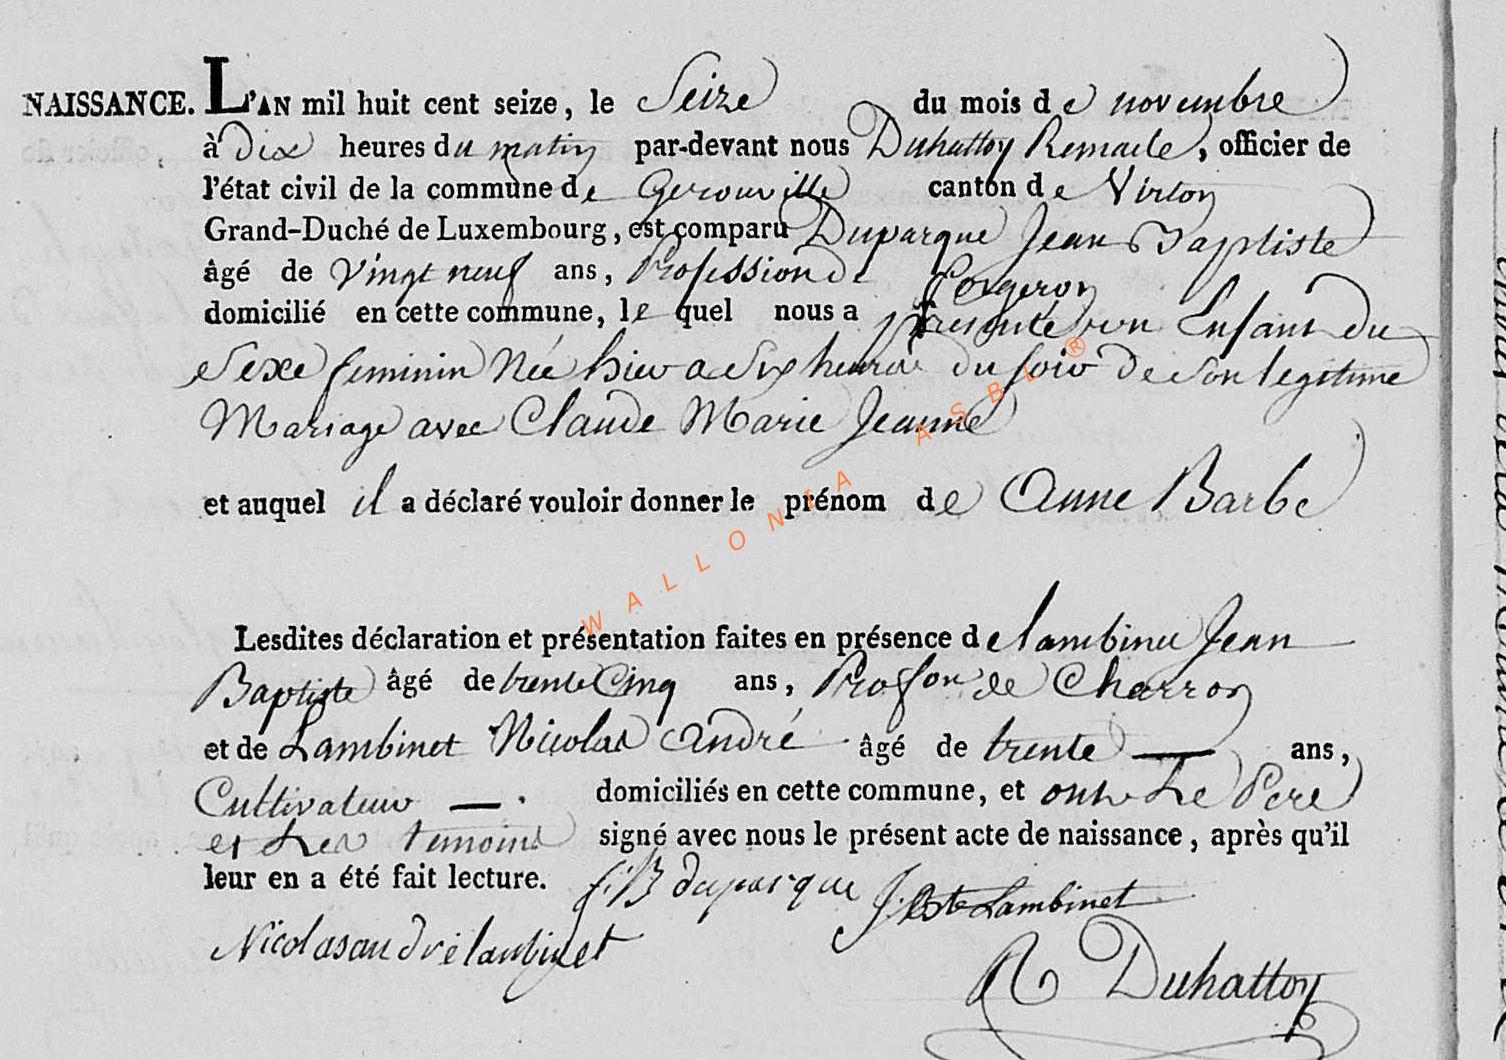 NAISSANCE. L'AN mil huit cent seize, le Seize du mois de novembre
à Dix heures du matin par-devant nous Duhattoy Remacle, officier de
l'état civil de la commune de Gerouville canton de Virton
Grand-Duché de Luxembourg, est comparu Duparque Jean Baptiste
âgé de vingt neuf ans, Profession de forgeron
domicilié en cette commune, le quel nous a presenté un Enfant du
Sexe feminin Née hier a Six heures du soir de son legitime
Mariage avec Claude Marie Jeanne
et auquel il a déclaré vouloir donner le prénom de Anne Barbe
WALLONIA ASBL ®
Lesdites déclaration et présentation faites en présence de lambinet Jean
Baptiste âgé de trente Cinq ans, Profon de Charron
et de Lambinet Nicolas André âgé de trente — ans,
Cultivateur — . domiciliés en cette commune, et ont Le Pere
et Les temoins signé avec nous le présent acte de naissance, après qu'il
leur en a été fait lecture. j:B duparque J:Bte Lambinet
Nicolas andré lambinet
R Duhattoy